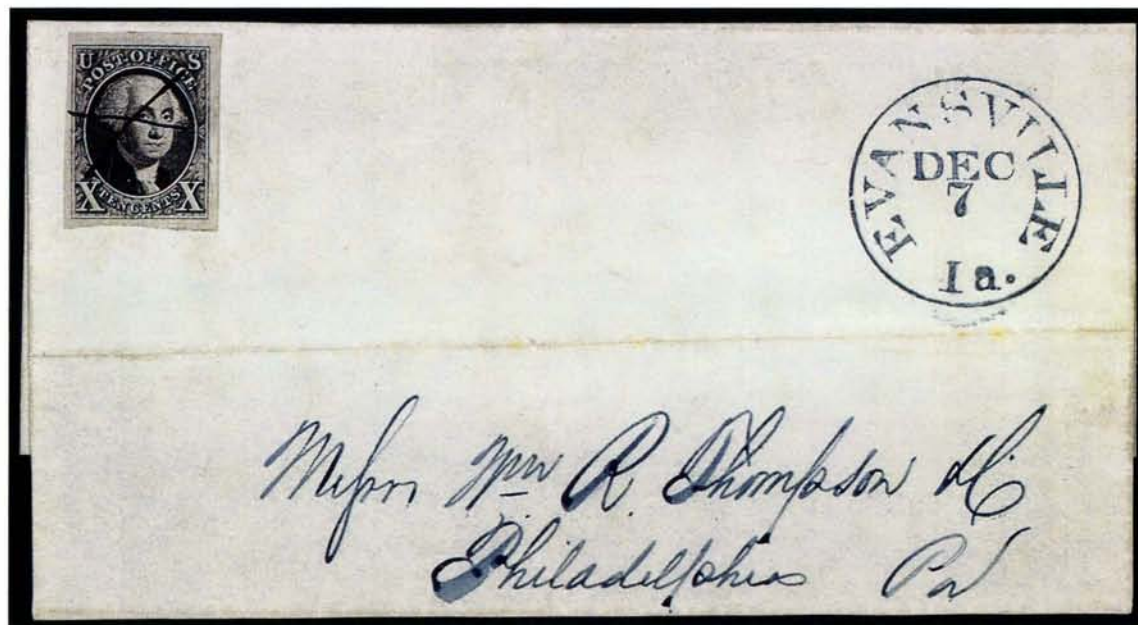 U S
POST OFFICE
X TEN CENTS X
EVANSVILLE
DEC
7
Ia.
Messrs Wm R. Thompson & Co
Philadelphia Pa